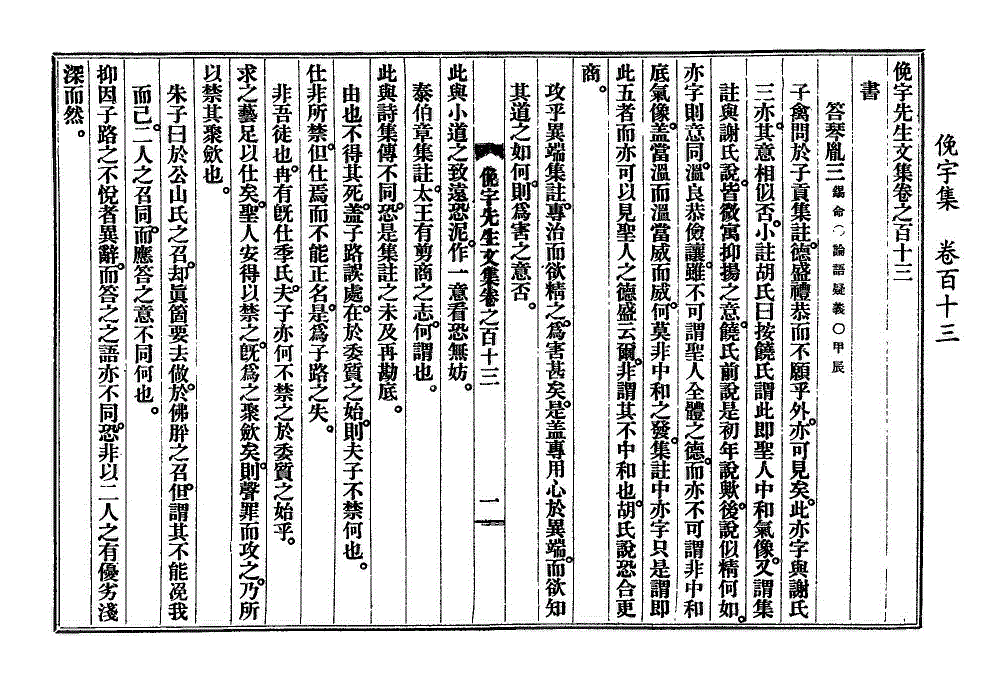 俛宇集　卷百十三
俛宇先生文集卷之百十三
書
答琴胤三錫命○論語疑義○甲辰
子禽問於子貢集註。德盛禮恭而不願乎外。亦可見矣。此亦字與謝氏
三亦。其意相似否。小註胡氏曰按饒氏謂此卽聖人中和氣像。又謂集
註與謝氏說。皆微寓抑揚之意。饒氏前說是初年說歟。後說似精何如。
亦字則意同。溫良恭儉讓。雖不可謂聖人全體之德。而亦不可謂非中和
底氣像。蓋當溫而溫當威而威。何莫非中和之發。集註中亦字只是謂卽
此五者而亦可以見聖人之德盛云爾。非謂其不中和也。胡氏說恐合更
商。
攻乎異端集註。專治而欲精之。爲害甚矣。是盖專用心於異端。而欲知
其道之如何。則爲害之意否。
俛宇先生文集卷之百十三　一
此與小道之致遠恐泥。作一意看恐無妨。
泰伯章集註。太王有剪商之志。何謂也。
此與詩集傳不同。恐是集註之未及再勘底。
由也不得其死。盖子路誤處。在於委質之始。則夫子不禁何也。
仕非所禁。但仕焉而不能正名。是爲子路之失。
非吾徒也。冉有旣仕季氏。夫子亦何不禁之於委質之始乎。
求之藝足以仕矣。聖人安得以禁之。旣爲之聚斂矣。則聲罪而攻之。乃所
以禁其聚斂也。
朱子曰於公山氏之召。却眞箇要去做。於佛肸之召。但謂其不能浼我
而已。二人之召同。而應答之意不同何也。
抑因子路之不悅者異辭。而答之之語亦不同。恐非以二人之有優劣淺
深而然。